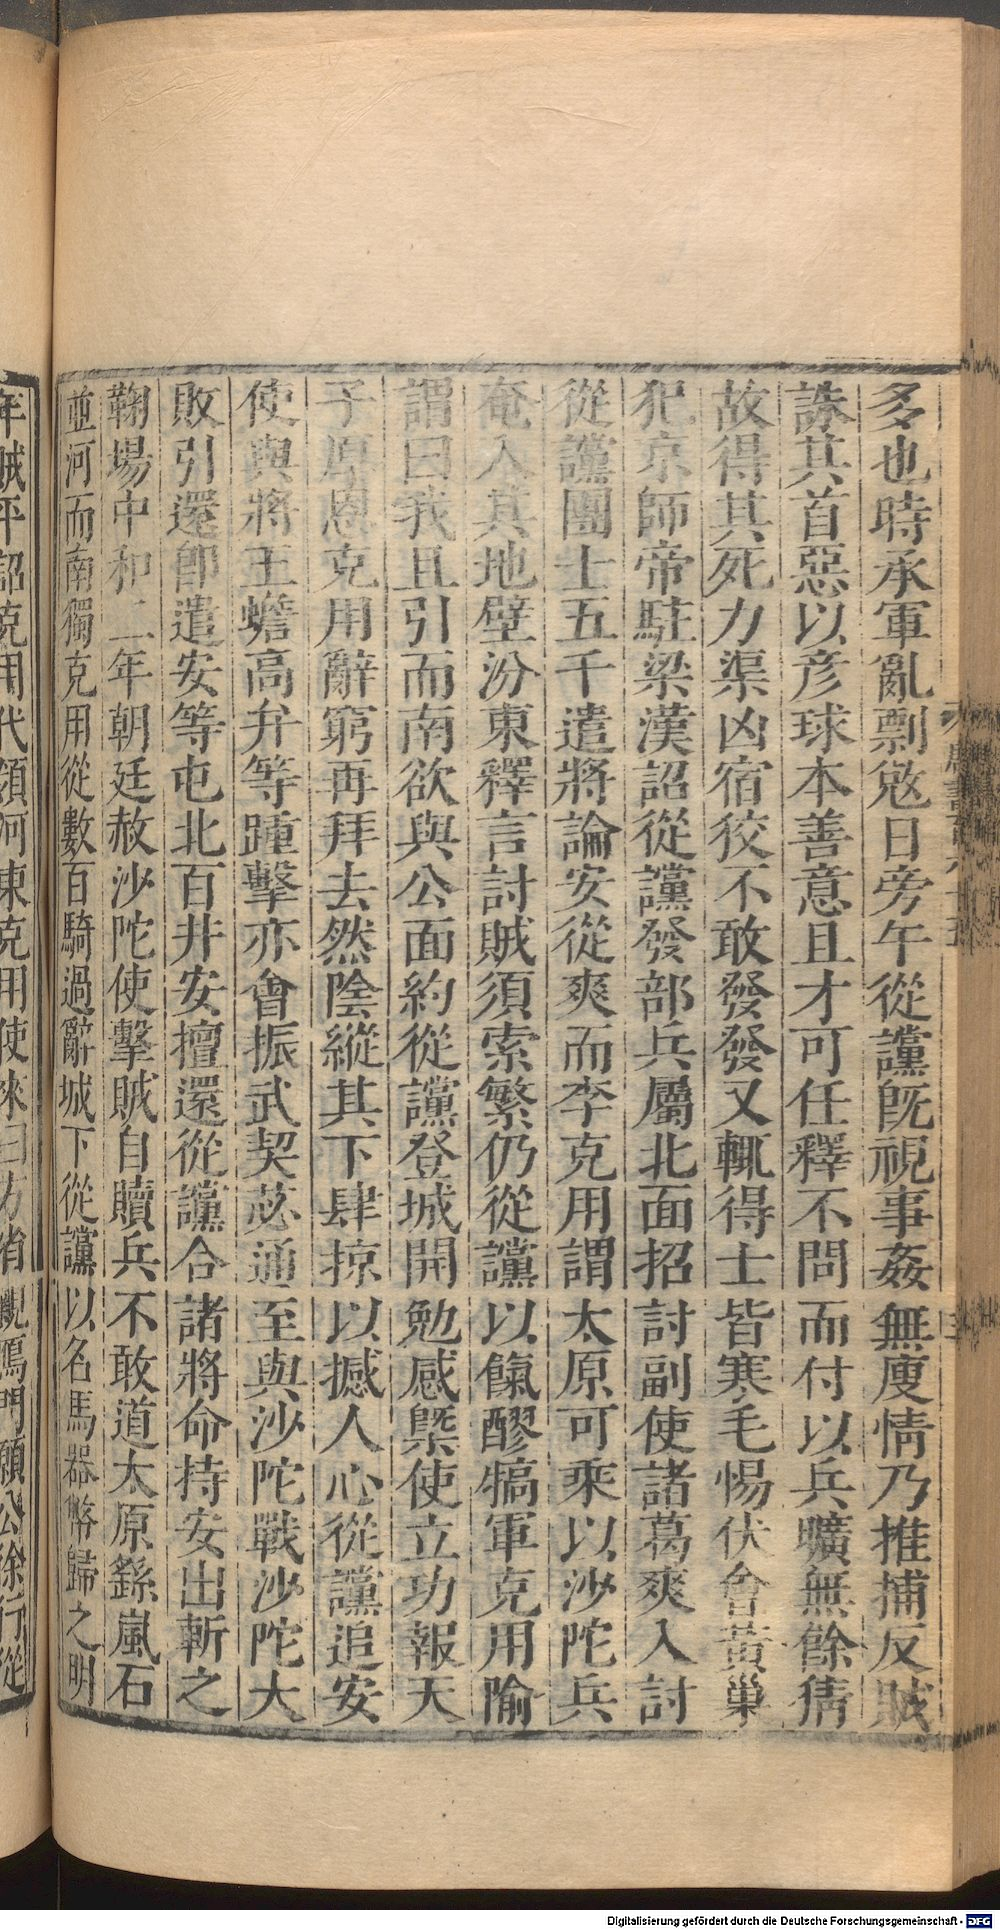 多也時承軍亂剽敓日旁午從讜旣視事姦無廋情乃推捕反賊
誅其首惡以彥球本善意且才可任釋不問而付以兵曠無餘猜
故得其死力渠凶宿狡不敢發發又輒得士皆寒毛惕伏會黃巢
犯京師帝駐梁漢詔從讜發部兵屬北面招討副使諸葛爽入討
從讜團士五千遣將論安從爽而李克用謂太原可乘以沙陀兵
奄入其地壁汾東釋言討賊須索繁仍從讜以餼醪犒軍克用隃
謂曰我且引而南欲與公面約從讜登城開勉感槩使立功報天
子厚恩克用辭窮再拜去然陰縱其下肆掠以撼人心從讜追安
使與將王蟾高弁等踵擊亦會振武契苾通至與沙陀戰沙陀大
敗引還卽遣安等屯北百井安擅還從讜合諸將命持安出斬之
鞠場中和二年朝廷赦沙陀使擊賊自贖兵不敢道太原繇嵐石
並河而南獨克用從數百騎過辭城下從讜以名馬器幣歸之明
年賊平詔克用代領河東克用使來曰方省親鴈門願公徐行從
Digitalisierung gefördert durch die Deutsche Forschungsgemeinschaft - DFG